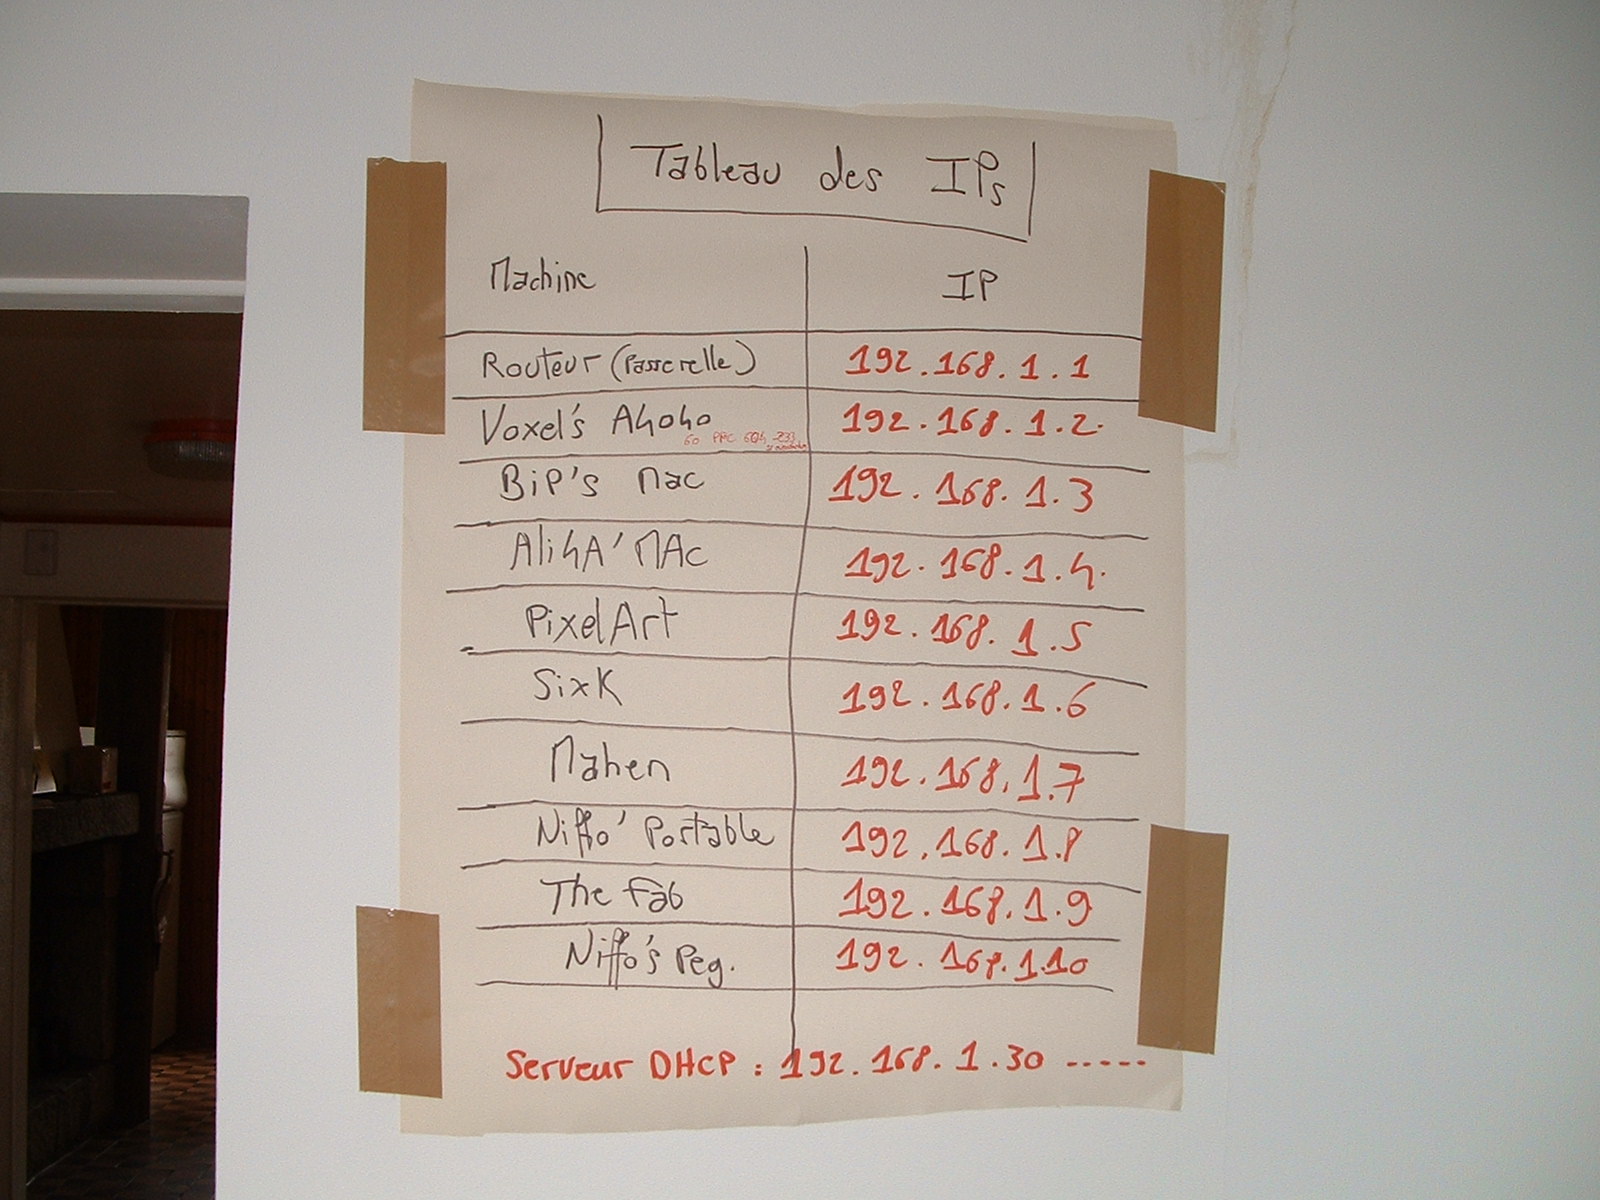 Tableau des IPs
Machine IP
Routeur (Passerelle) 192.168.1.1
Voxel's A4040 192.168.1.2
60 PPC 604 233
BiP's Mac 192.168.1.3
Ali4A' MAc 192.168.1.4
PixelArt 192.168.1.5
SixK 192.168.1.6
Mahen 192.168.1.7
Niffo' Portable 192.168.1.8
The Fab 192.168.1.9
Niffo's Peg. 192.168.1.10
Serveur DHCP : 192.168.1.30 -----